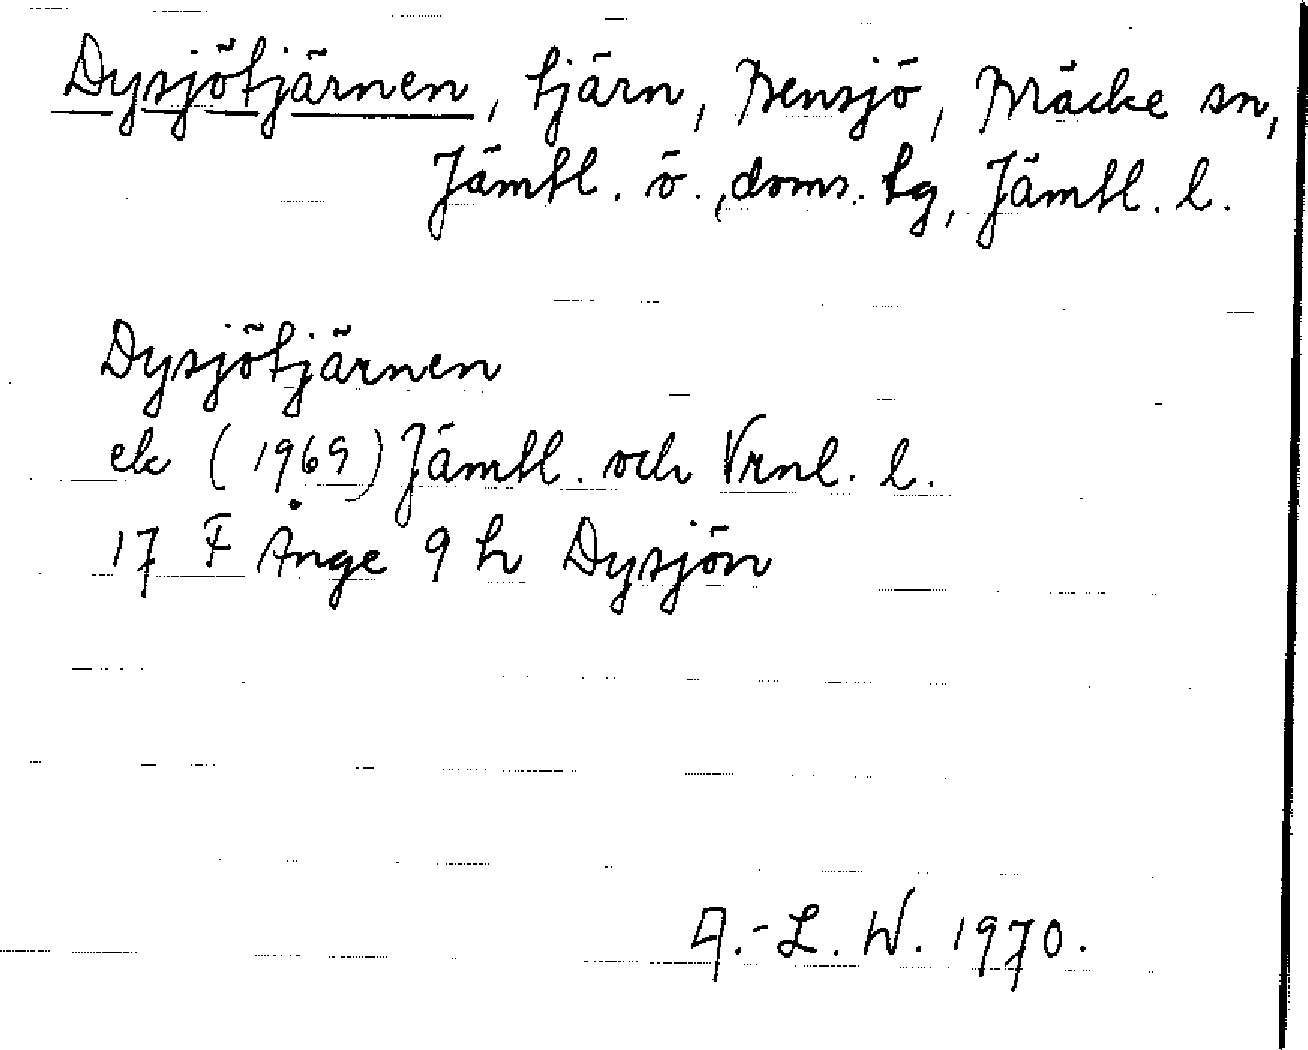 Dysjötjärnen, tjärn, Bensjö, Bräcke sn,
Jämtl. ö. doms. tg, Jämtl. l.
Dysjötjärnen
ek (1969) Jämtl. och Vrnl. l.
17 F Ånge 9 h Dysjön
A.-L. W. 1970.